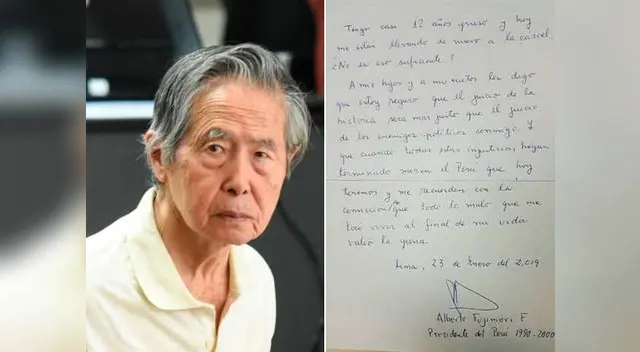 Tengo casi 12 años preso y hoy
me están llevando de nuevo a la cárcel.
¿No es eso suficiente?
A mis hijos y a mis nietos les digo
que estoy seguro que el juicio de la
historia será más justo que el juicio
de los enemigos políticos conmigo y
que cuando todas estas injusticias hayan
terminado miren el Perú que hoy
tenemos y me recuerden con la
convicción de que todo lo malo que me
tocó vivir al final de mi vida
valió la pena.
Lima, 23 de Enero del 2,019
Alberto Fujimori F
Presidente del Perú 1990-2000